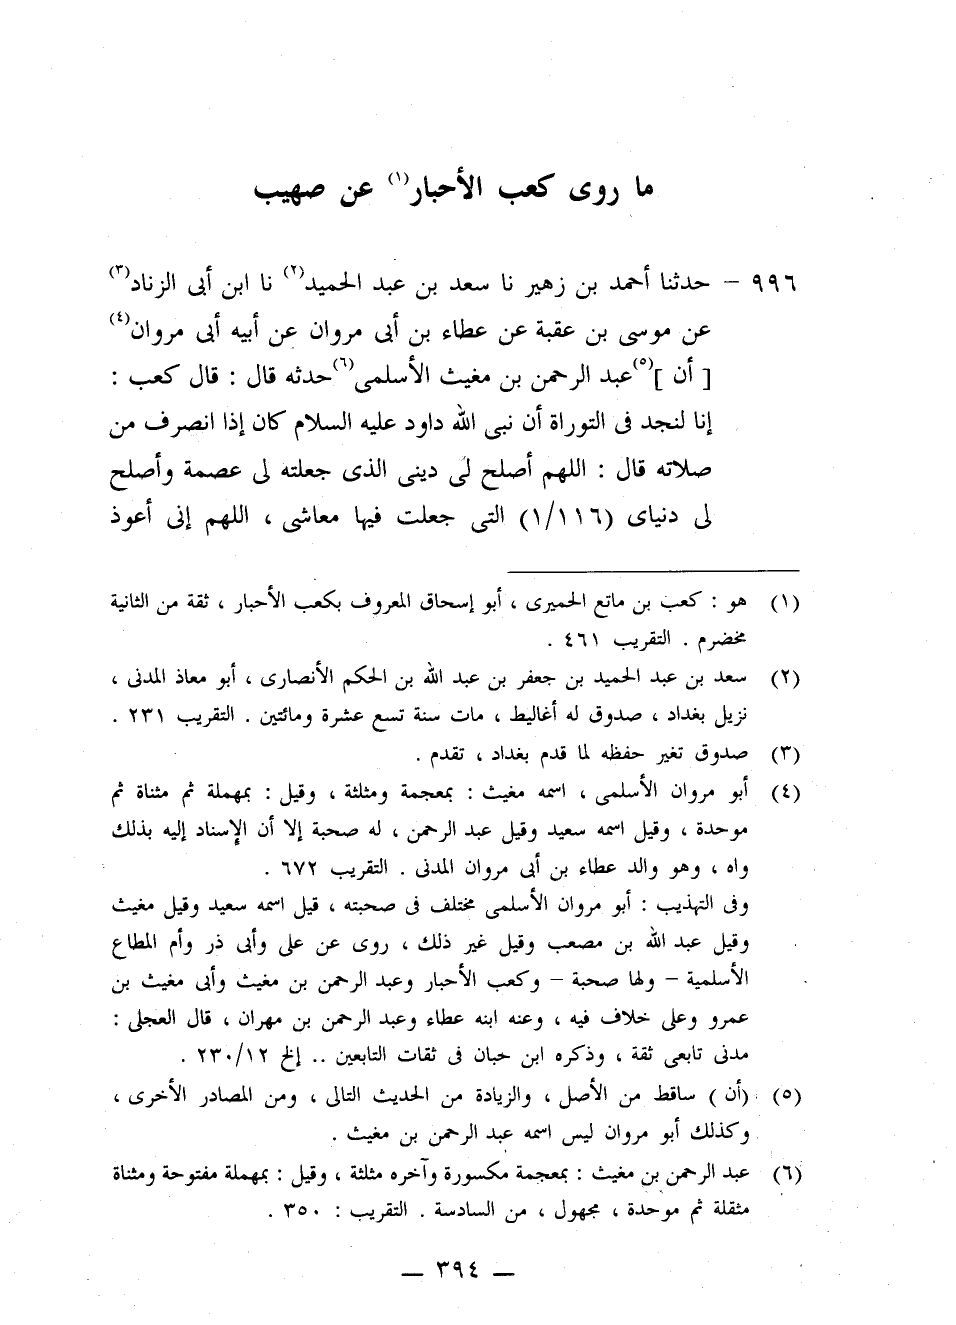 ما روى كعب الأحبار(١) عن صهيب
٩٩٦ – حدثنا أحمد بن زهير نا سعد بن عبد الحميد(٢) نا ابن أبى الزناد(٣)
عن موسى بن عقبة عن عطاء بن أبى مروان عن أبيه أبى مروان(٤)
[ أن ](٥)عبد الرحمن بن مغيث الأسلمى(٦)حدثه قال : قال كعب :
إنا لنجد فى التوراة أن نبى الله داود عليه السلام كان إذا انصرف من
صلاته قال : اللهم أصلح لى دينى الذى جعلته لى عصمة وأصلح
لى دنياى (١/١١٦) التى جعلت فيها معاشى ، اللهم إنى أعوذ
(١) هو : كعب بن ماتع الحميرى ، أبو إسحاق المعروف بكعب الأحبار ، ثقة من الثانية
مخضرم . التقريب ٤٦١ .
(٢) سعد بن عبد الحميد بن جعفر بن عبد الله بن الحكم الأنصارى ، أبو معاذ المدنى ،
نزيل بغداد ، صدوق له أغاليط ، مات سنة تسع عشرة ومائتين . التقريب ٢٣١ .
(٣) صدوق تغير حفظه لما قدم بغداد ، تقدم .
(٤) أبو مروان الأسلمى ، اسمه مغيث : بمعجمة ومثلثة ، وقيل : بمهملة ثم مثناة ثم
موحدة ، وقيل اسمه سعيد وقيل عبد الرحمن ، له صحبة إلا أن الإسناد إليه بذلك
واه ، وهو والد عطاء بن أبى مروان المدنى . التقريب ٦٧٢ .
وفى التهذيب : أبو مروان الأسلمى مختلف فى صحبته ، قيل اسمه سعيد وقيل مغيث
وقيل عبد الله بن مصعب وقيل غير ذلك ، روى عن على وأبى ذر وأم المطاع
الأسلمية – ولها صحبة – وكعب الأحبار وعبد الرحمن بن مغيث وأبى مغيث بن
عمرو وعلى خلاف فيه ، وعنه ابنه عطاء وعبد الرحمن بن مهران ، قال العجلى :
مدنى تابعى ثقة ، وذكره ابن حبان فى ثقات التابعين .. إلخ ٢٣٠/١٢ .
(٥) (أن ) ساقط من الأصل ، والزيادة من الحديث التالى ، ومن المصادر الأخرى ،
وكذلك أبو مروان ليس اسمه عبد الرحمن بن مغيث .
(٦) عبد الرحمن بن مغيث : بمعجمة مكسورة وآخره مثلثة ، وقيل : بمهملة مفتوحة ومثناة
مثقلة ثم موحدة ، مجهول ، من السادسة . التقريب : ٣٥٠ .
— ٣٩٤ —